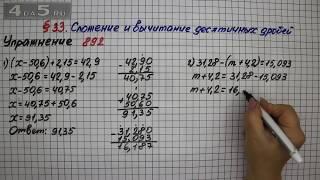 4DA5.RU
§33. Сложение и вычитание десятичных дробей
Упражнение 892
1) (x-50,6)+2,15=42,9
x-50,6=42,9-2,15
x-50,6=40,75
x=40,75+50,6
x=91,35
Ответ: 91,35
- 42,90
2,15
40,75
+ 40,75
50,60
91,35
- 31,280
15,093
16,187
2) 31,28-(m+4,2)=15,093
m+4,2=31,28-15,093
m+4,2=16,